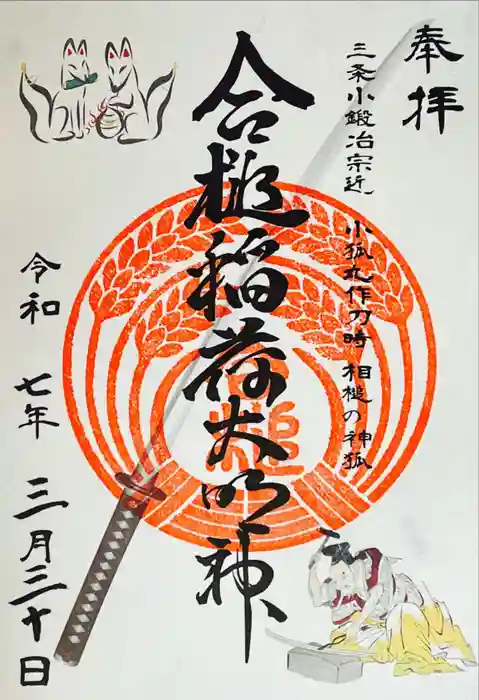 奉拝
三条小鍛冶宗近 小狐丸作刀時 相槌の神狐
合槌稲荷大明神
令和 七年 三月三十日